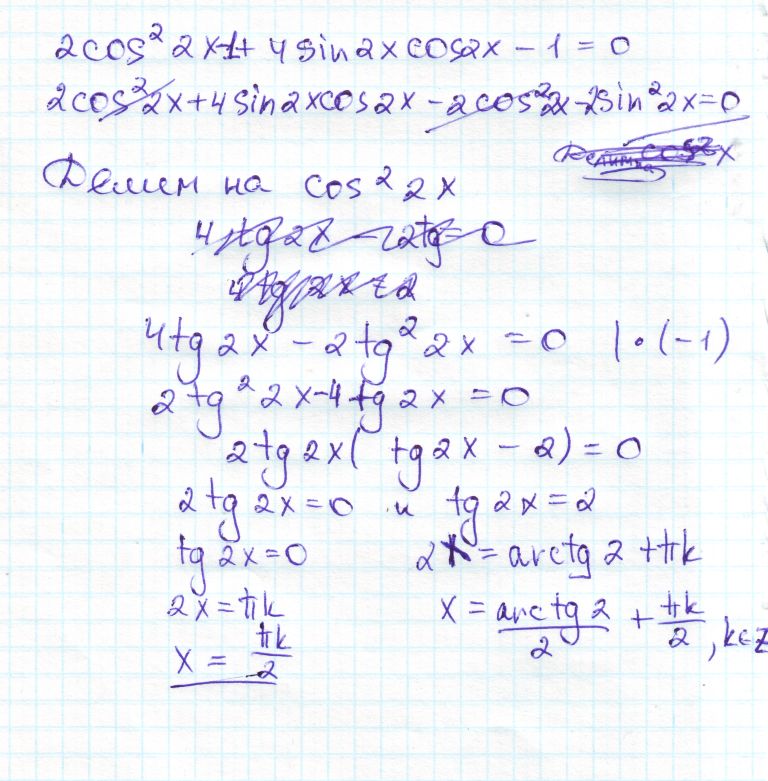 2cos² 2x-1+ 4sin2xcos2x - 1 = 0
2cos²2x+4sin2xcos2x - 2cos²2x-2sin²2x=0
Делим на cos² 2x
4tg2x - 2tg = 0
4tg 2x - 2tg² 2x = 0 | • (-1)
2tg² 2x-4tg 2x = 0
2tg2x( tg2x - 2) = 0
2tg 2x=0 и tg 2x=2
tg 2x=0 2x=arctg 2 +πk
2x=πk x = arctg 2/2 + πk/2, k∈Z
x = πk/2